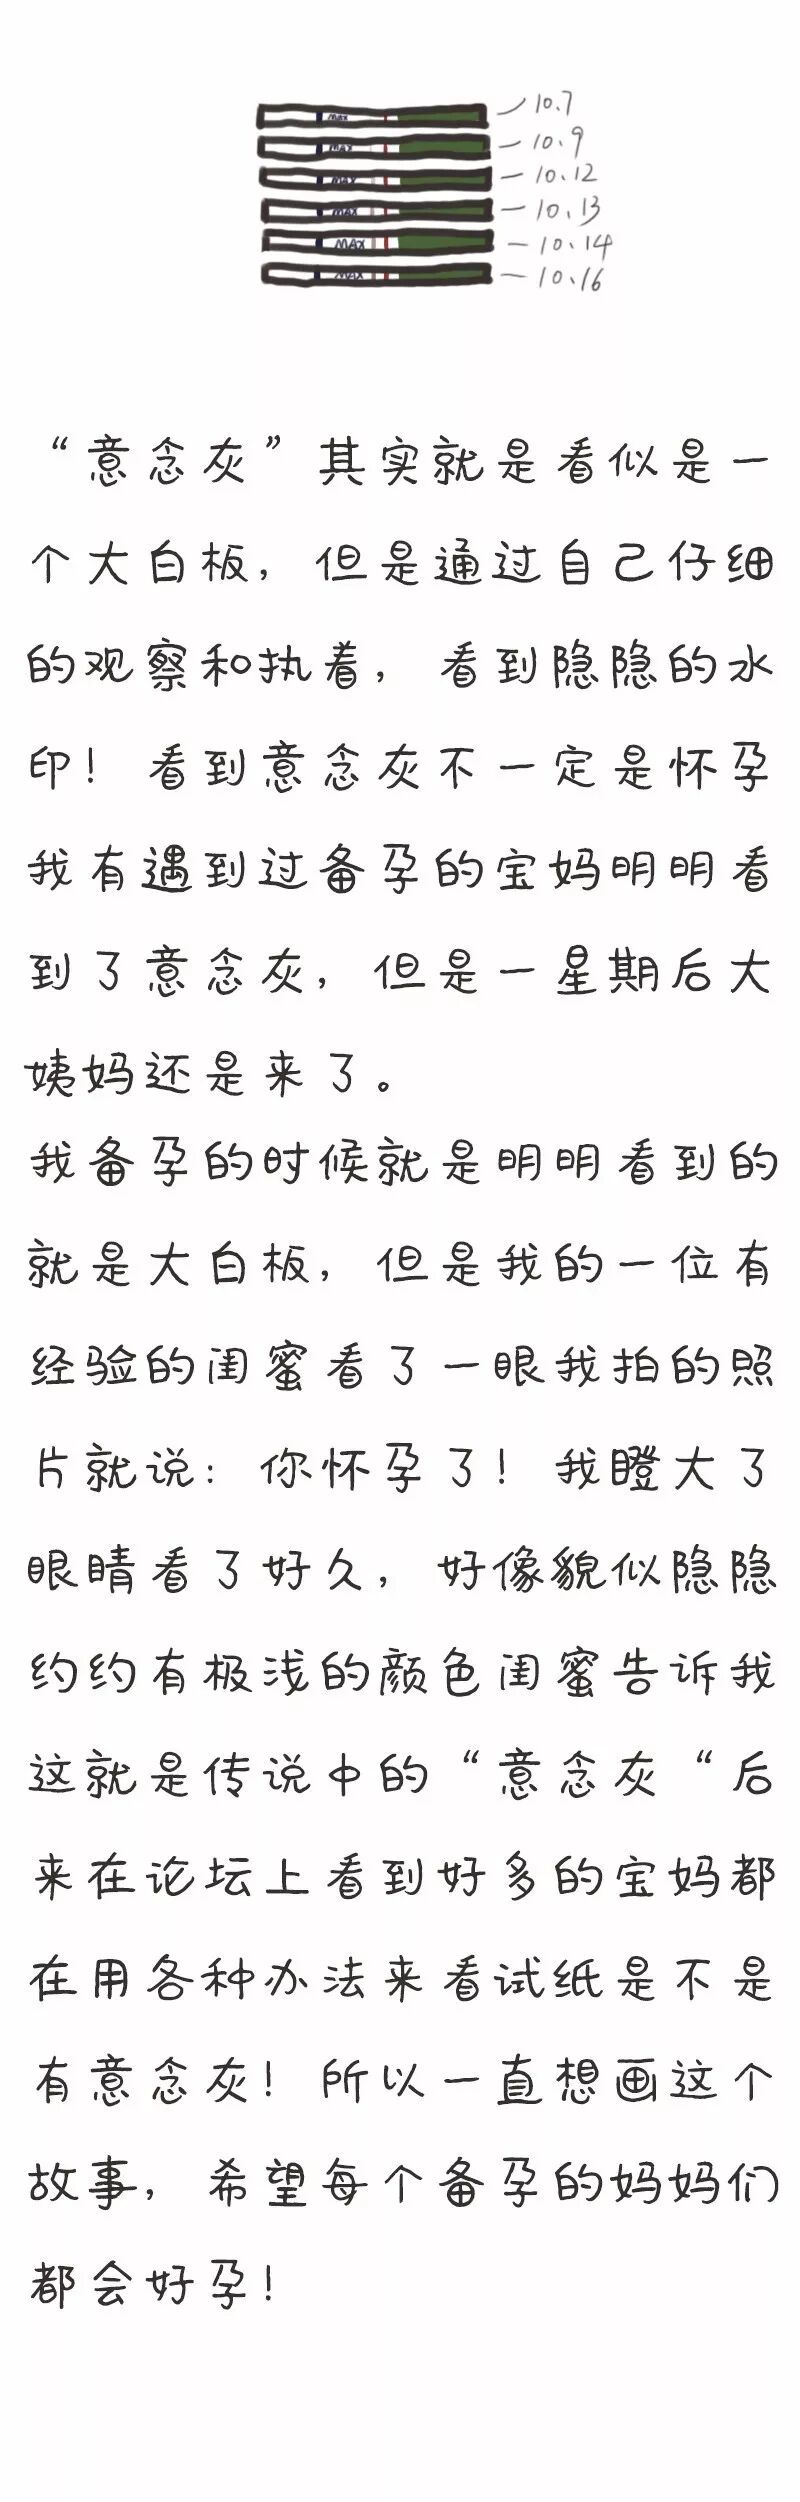 MAX 10.7
MAX 10.9
MAX 10.12
MAX 10.13
MAX 10.14
MAX 10.16
“意念灰”其实就是看似是一
个大白板，但是通过自己仔细
的观察和执着，看到隐隐的水
印！看到意念灰不一定是怀孕
我有遇到过备孕的宝妈明明看
到了意念灰，但是一星期后大
姨妈还是来了。
我备孕的时候就是明明看到的
就是大白板，但是我的一位有
经验的闺蜜看了一眼我拍的照
片就说：你怀孕了！我瞪大了
眼睛看了好久，好像貌似隐隐
约约有极浅的颜色闺蜜告诉我
这就是传说中的“意念灰“后
来在论坛上看到好多的宝妈都
在用各种办法来看试纸是不是
有意念灰！所以一直想画这个
故事，希望每个备孕的妈妈们
都会好孕！